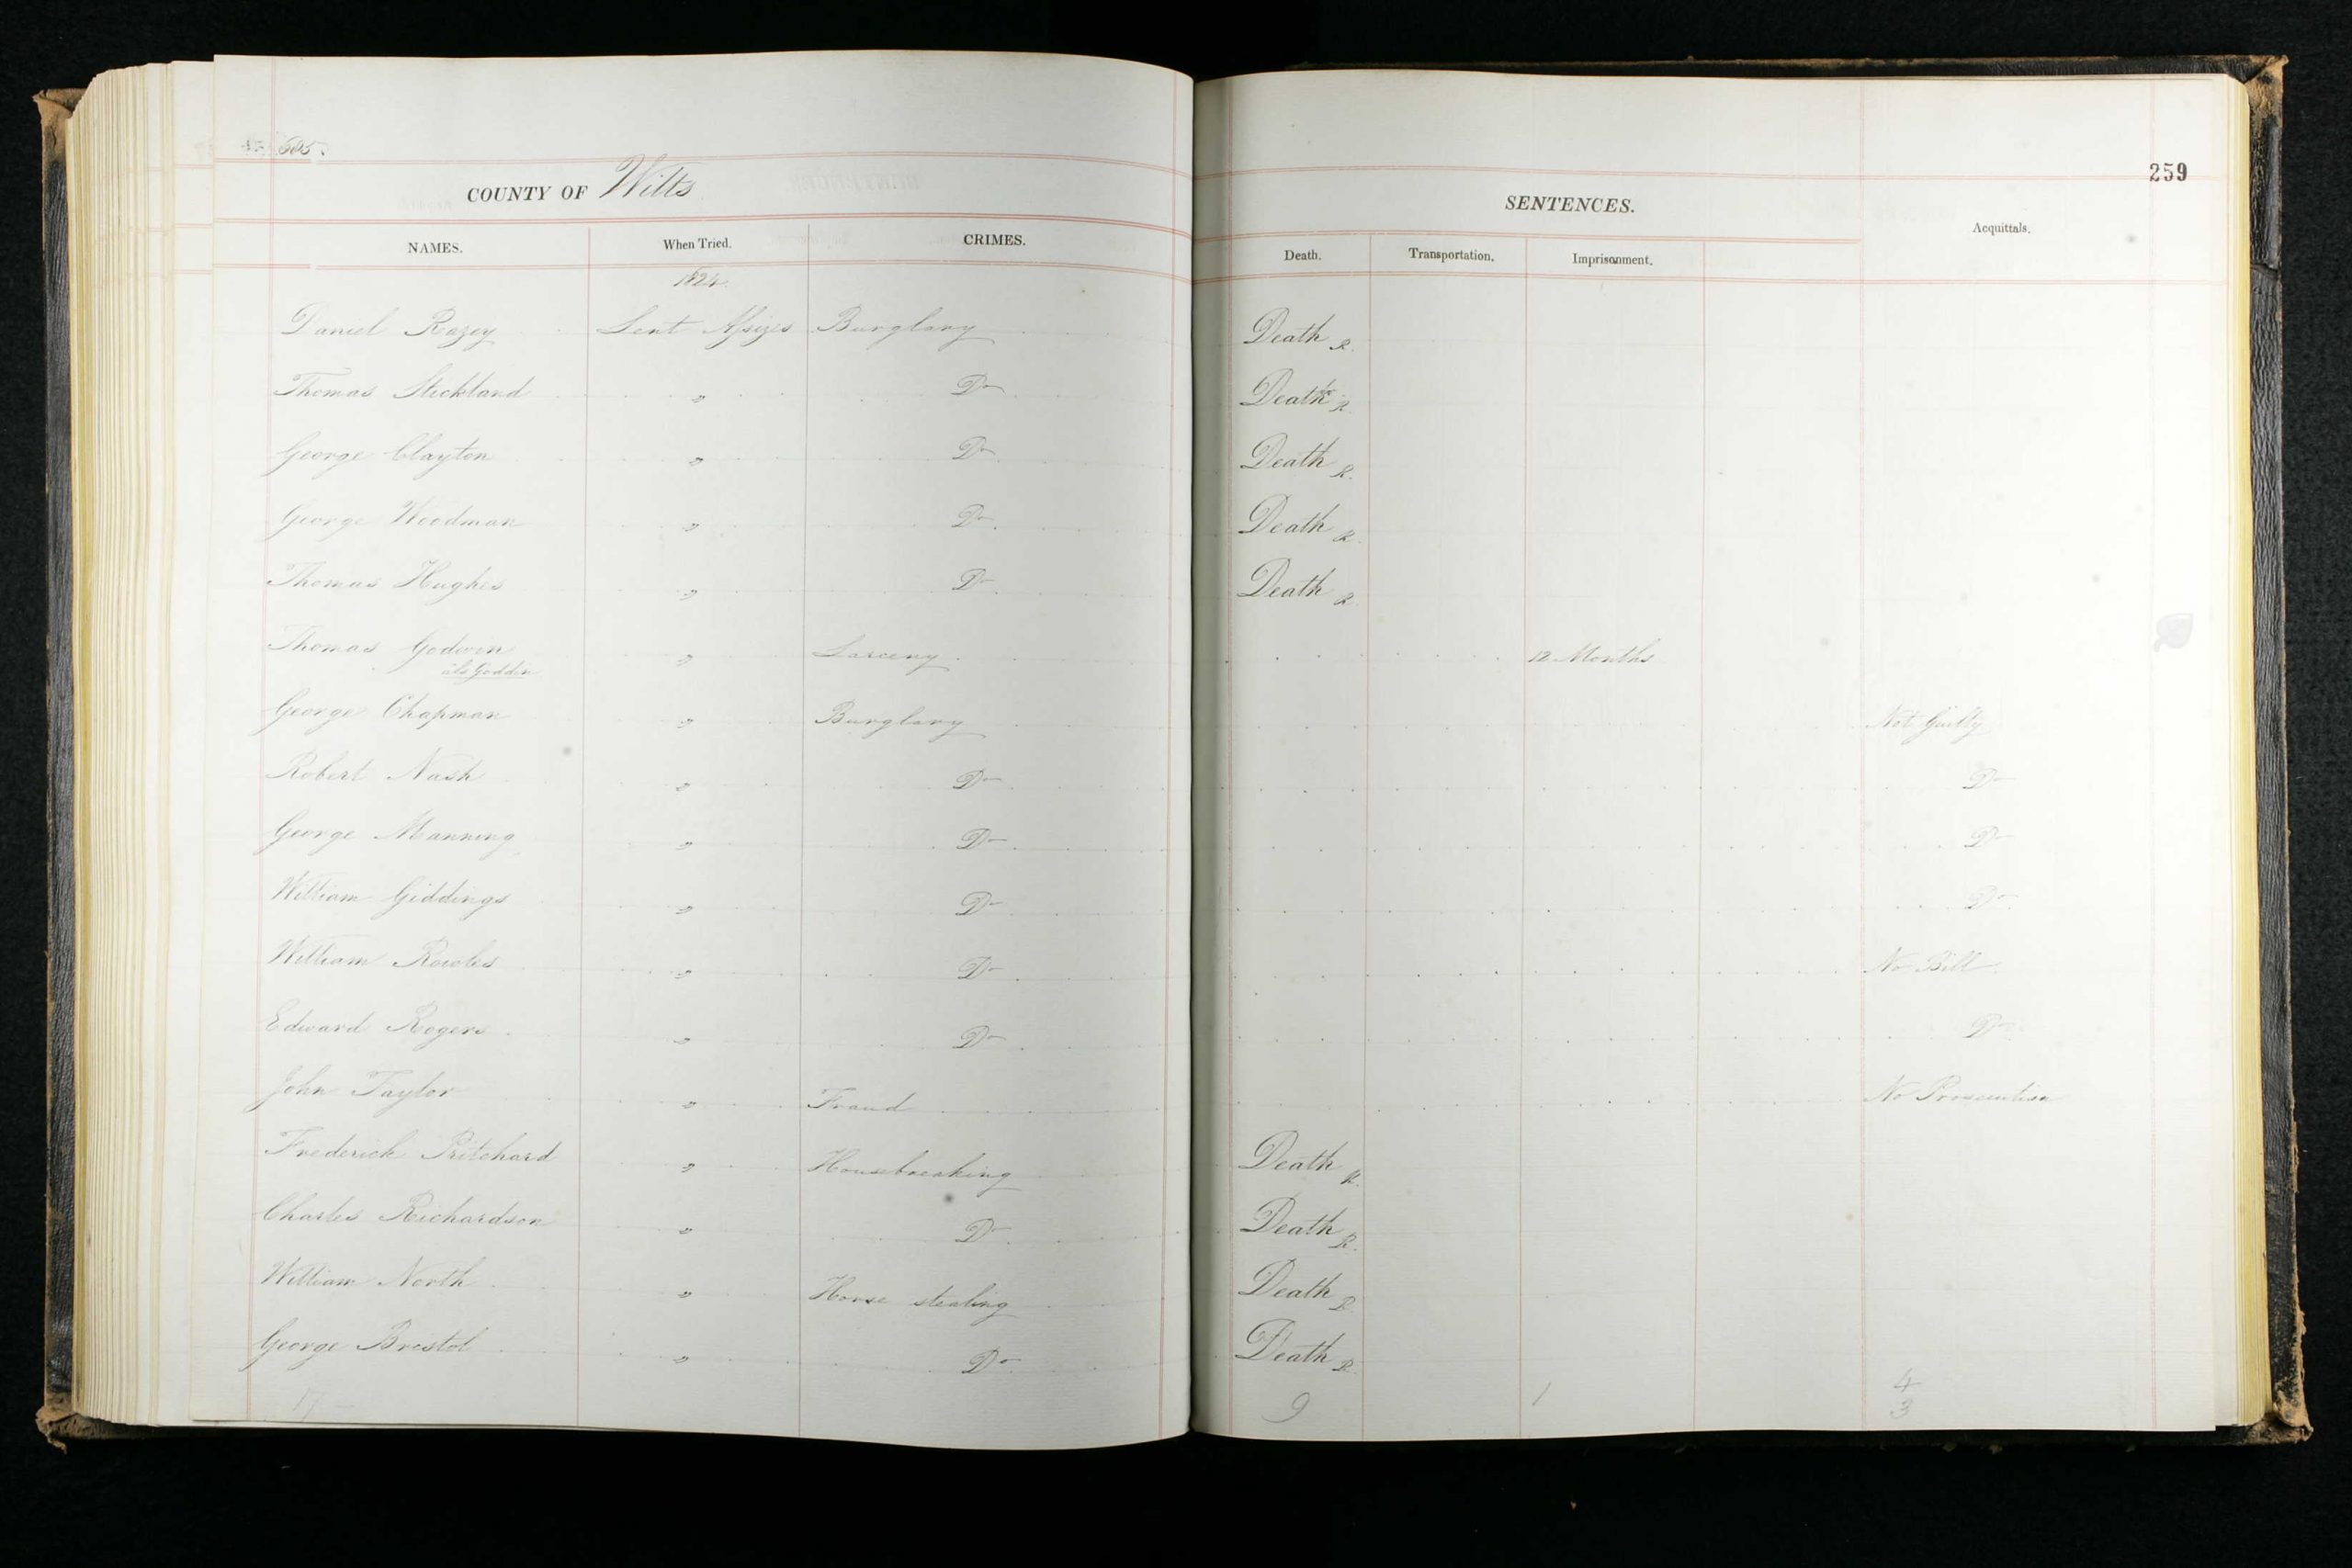 585.
259
COUNTY OF Wilts
SENTENCES.
NAMES. When Tried. CRIMES. Death. Transportation. Imprisonment. Acquittals.
1824
Daniel Razey Lent Assizes Burglary Death R.
Thomas Stickland " Do Death R.
George Clayton " Do Death R.
George Woodman " Do Death R.
Thomas Hughes " Do Death R.
Thomas Godwin " Larceny 12 Months
als Godden
George Chapman " Burglary Not Guilty
Robert Nash " Do Do
George Manning " Do Do
William Giddings " Do Do
William Rowles " Do No Bill
Edward Rogers " Do Do
John Taylor " Fraud No Prosecution
Frederick Pritchard " Housebreaking Death R.
Charles Richardson " Do Death R.
William North " Horse stealing Death R.
George Bristol " Do Death R.
17 9 1 4
3